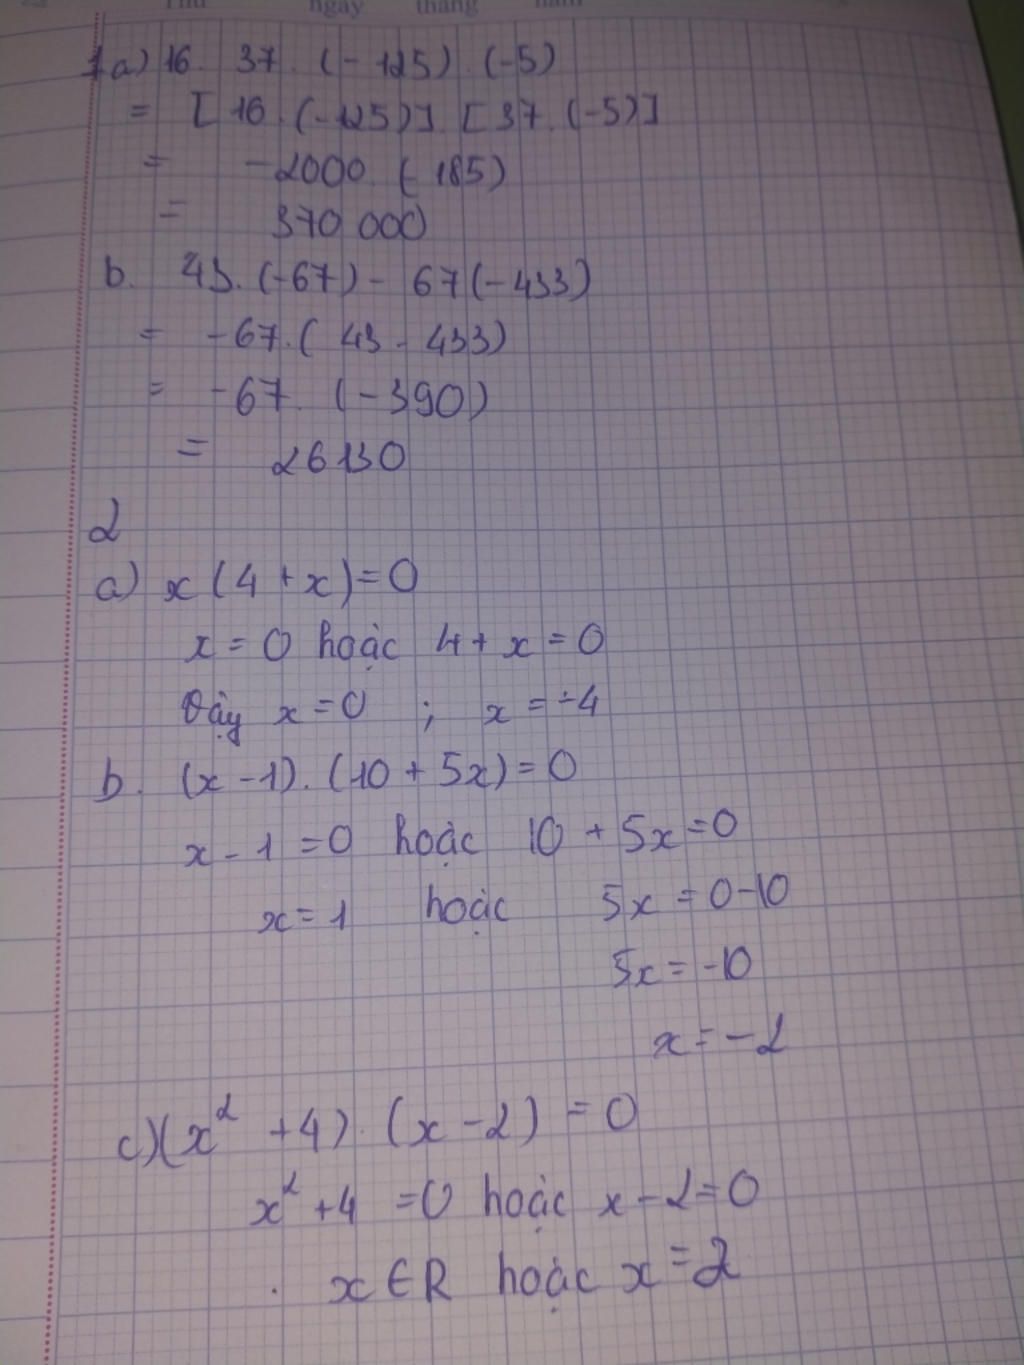 Thứ ngày tháng năm
1a) 16. 37. (-125). (-5)
= [16. (-125)]. [37. (-5)]
= -2000. (-185)
= 370 000
b. 43. (-67) - 67(-433)
= -67. (43 - 433)
= -67. (-390)
= 26130
2
a) x(4 + x) = 0
x = 0 hoặc 4 + x = 0
Vậy x = 0 ; x = -4
b. (x - 1). (10 + 5x) = 0
x - 1 = 0 hoặc 10 + 5x = 0
x = 1 hoặc 5x = 0 - 10
5x = -10
x = -2
c) (x² + 4). (x - 2) = 0
x² + 4 = 0 hoặc x - 2 = 0
x ∈ R hoặc x = 2